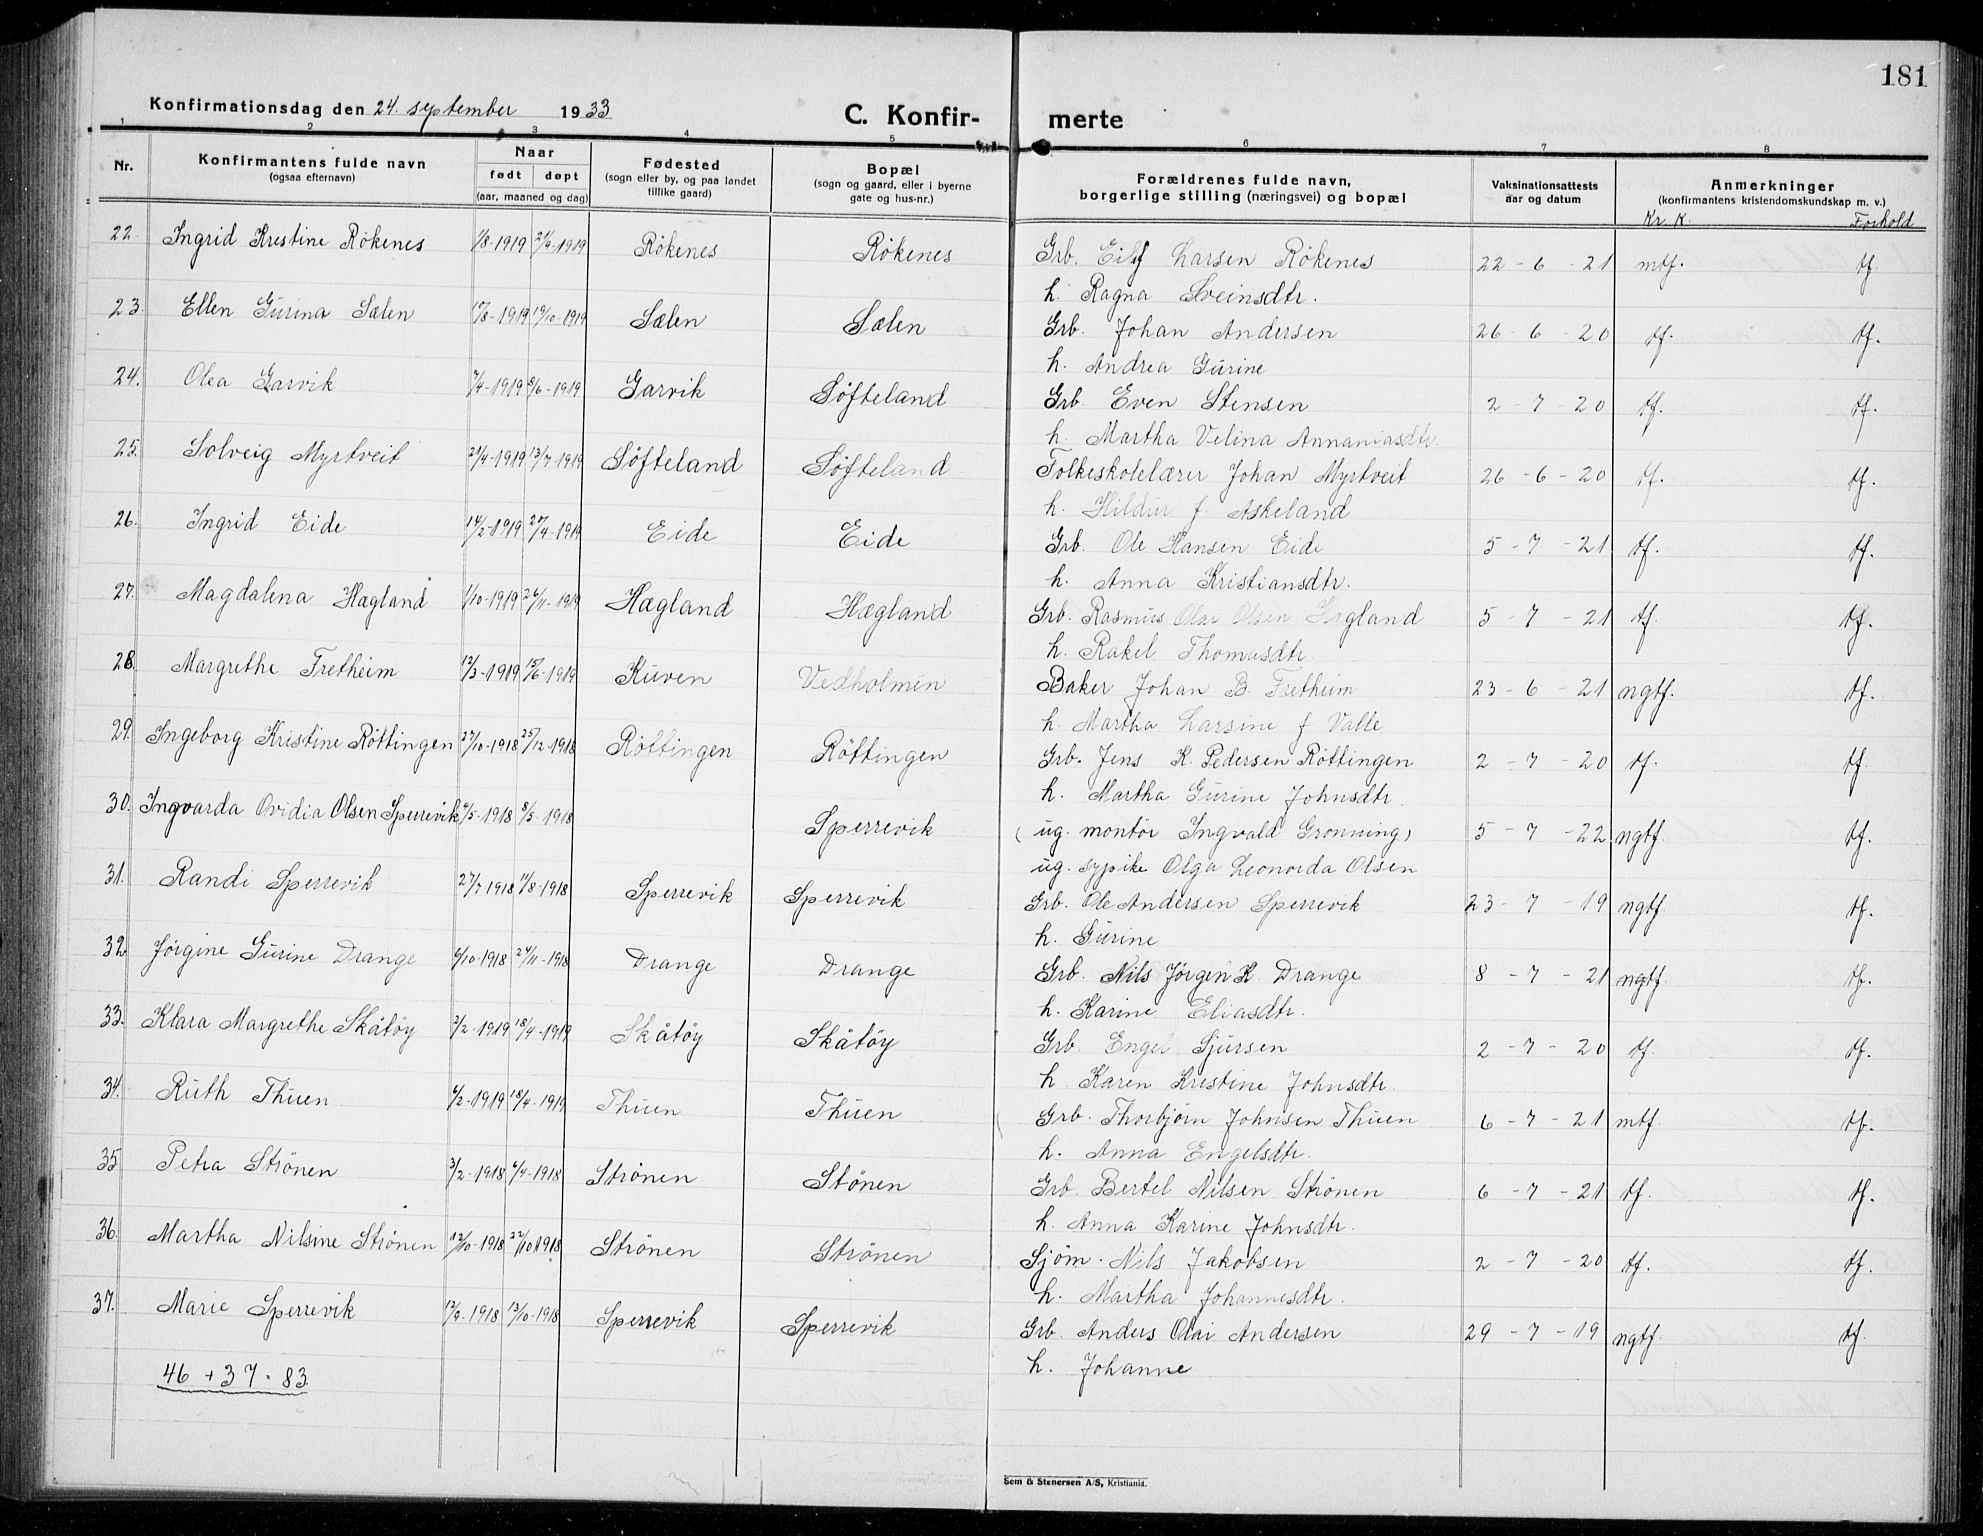 181
Konfirmationsdag den 24. september 1933
C. Konfirmerte
1 2 3 4 5 6 7 8
Nr. Konfirmantens fulde navn (ogsaa efternavn) Naar født døpt (aar, maaned og dag) Fødested (sogn eller by, og paa landet tillike gaard) Bopæl (sogn og gaard, eller i byerne gate og hus-nr.) Forældrenes fulde navn, borgerlige stilling (næringsvei) og bopæl Vaksinationsattests aar og datum Anmerkninger (konfirmantens kristendomskundskap m. v.)
Kr. K. Forhold
22. Ingrid Krestine Røkenes 1/8-1919 21/9-1919 Røkenes Røkenes Grb. Eilif Larsen Røkenes 22-6-21 mtf. tf.
h. Ragna Sveinsdtr.
23. Ellen Gurina Sælen 17/8-1919 19/10-1919 Sælen Sælen Grb. Johan Andersen 26-6-20 tf. tf.
h. Andrea Gurine
24. Olea Garvik 7/4-1919 8/6-1919 Garvik Søfteland Grb. Even Stensen 2-7-20 tf. tf.
h. Martha Velina Annaniasdtr.
25. Solveig Myrtveit 29/4-1919 13/7-1919 Søfteland Søfteland Folkeskolelærer Johan Myrtveit 26-6-20 tf. tf.
h. Hildur f. Askeland
26. Ingrid Eide 14/2-1919 27/4-1919 Eide Eide Grb. Ole Hansen Eide 5-7-21 tf. tf.
h. Anna Kristiansdtr.
27. Magdalena Hægland 1/10-1919 26/11-1919 Hægland Hægland Grb. Rasmus Olai Olsen Hægland 5-7-21 tf. tf.
h. Rakel Thomasdtr.
28. Margrethe Fretheim 12/3-1919 15/6-1919 Kuven Vedholmen Baker Johan B. Fretheim 23-6-21 ngtf. tf.
h. Martha Larsine f Valle
29. Ingeborg Kristine Røttingen 27/10-1918 25/12-1918 Røttingen Røttingen Grb. Jens K. Pedersen Røttingen 2-7-20 tf. tf.
h. Martha Gurine Johnsdtr.
30. Ingvarda Ovidia Olsen Sperrevik 4/5-1918 8/5-1918 Sperrevik (ug. montør Ingvald Grønning) 5-7-22 ngtf. tf.
ug. sypike Olga Leonorda Olsen
31. Randi Sperrevik 27/7 1918 11/8-1918 Sperrevik Sperrevik Grb. Ole Andersen Sperrevik 23-7-19 ngtf. tf.
h. Gurine
32. Jørgine Gurine Drange 6/10-1918 24/11-1918 Drange Drange Grb. Nils Jørgen K. Drange 8-7-21 ngtf. tf.
h. Karine Eliasdtr.
33. Klara Margrethe Skåtøy 2/2-1919 18/4-1919 Skåtøy Skåtøy Grb. Engel Sjursen 2-7-20 tf. tf.
h. Karen Krestine Johnsdtr.
34. Ruth Thuen 6/2-1919 18/4-1919 Thuen Thuen Grb. Thorbjørn Johnsen Thuen 6-7-21 mtf. tf.
h. Anna Engelsdtr.
35. Petra Strønen 3/2-1918 6/4-1918 Strønen Stønen Grb. Bertel Nilsen Strønen 6-7-21 tf. tf.
h. Anna Karine Johnsdtr.
36. Martha Nilsine Strønen 12/10-1918 22/10 1918 Strønen Strønen Sjøm. Nils Jakobsen 2-7-20 tf. tf.
h. Martha Johannesdtr.
37. Marie Sperrevik 12/9-1918 13/10-1918 Sperrevik Sperrevik Grb. Anders Olai Andersen 29-7-19 ngtf. tf.
h. Johanne
46 + 37 = 83
Sem & Stenersen A/S, Kristiania.